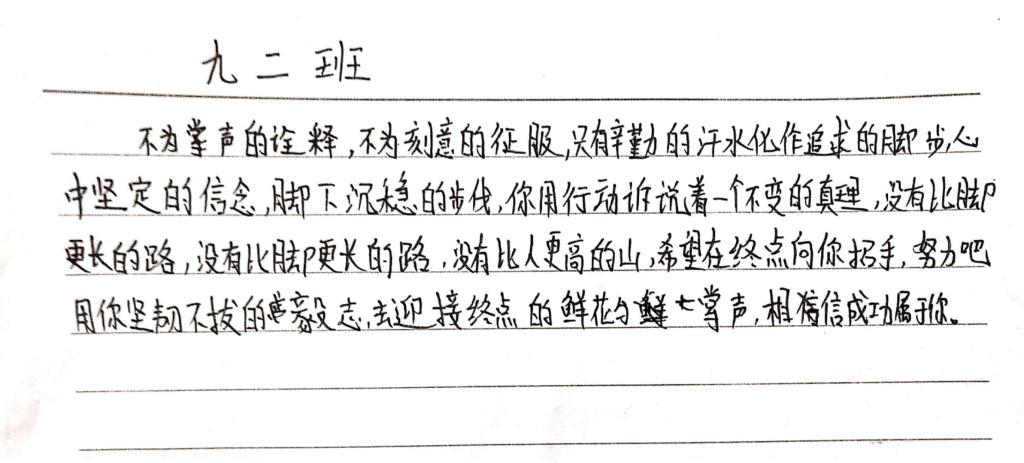 九二班
不为掌声的诠释,不为刻意的征服,只有辛勤的汗水化作追求的脚步,心
中坚定的信念,脚下沉稳的步伐,你用行动诉说着一个不变的真理,没有比脚
更长的路,没有比脚更长的路,没有比人更高的山,希望在终点向你招手,努力吧
用你坚韧不拔的毅志,去迎接终点的鲜花与掌声,相信成功属于你。